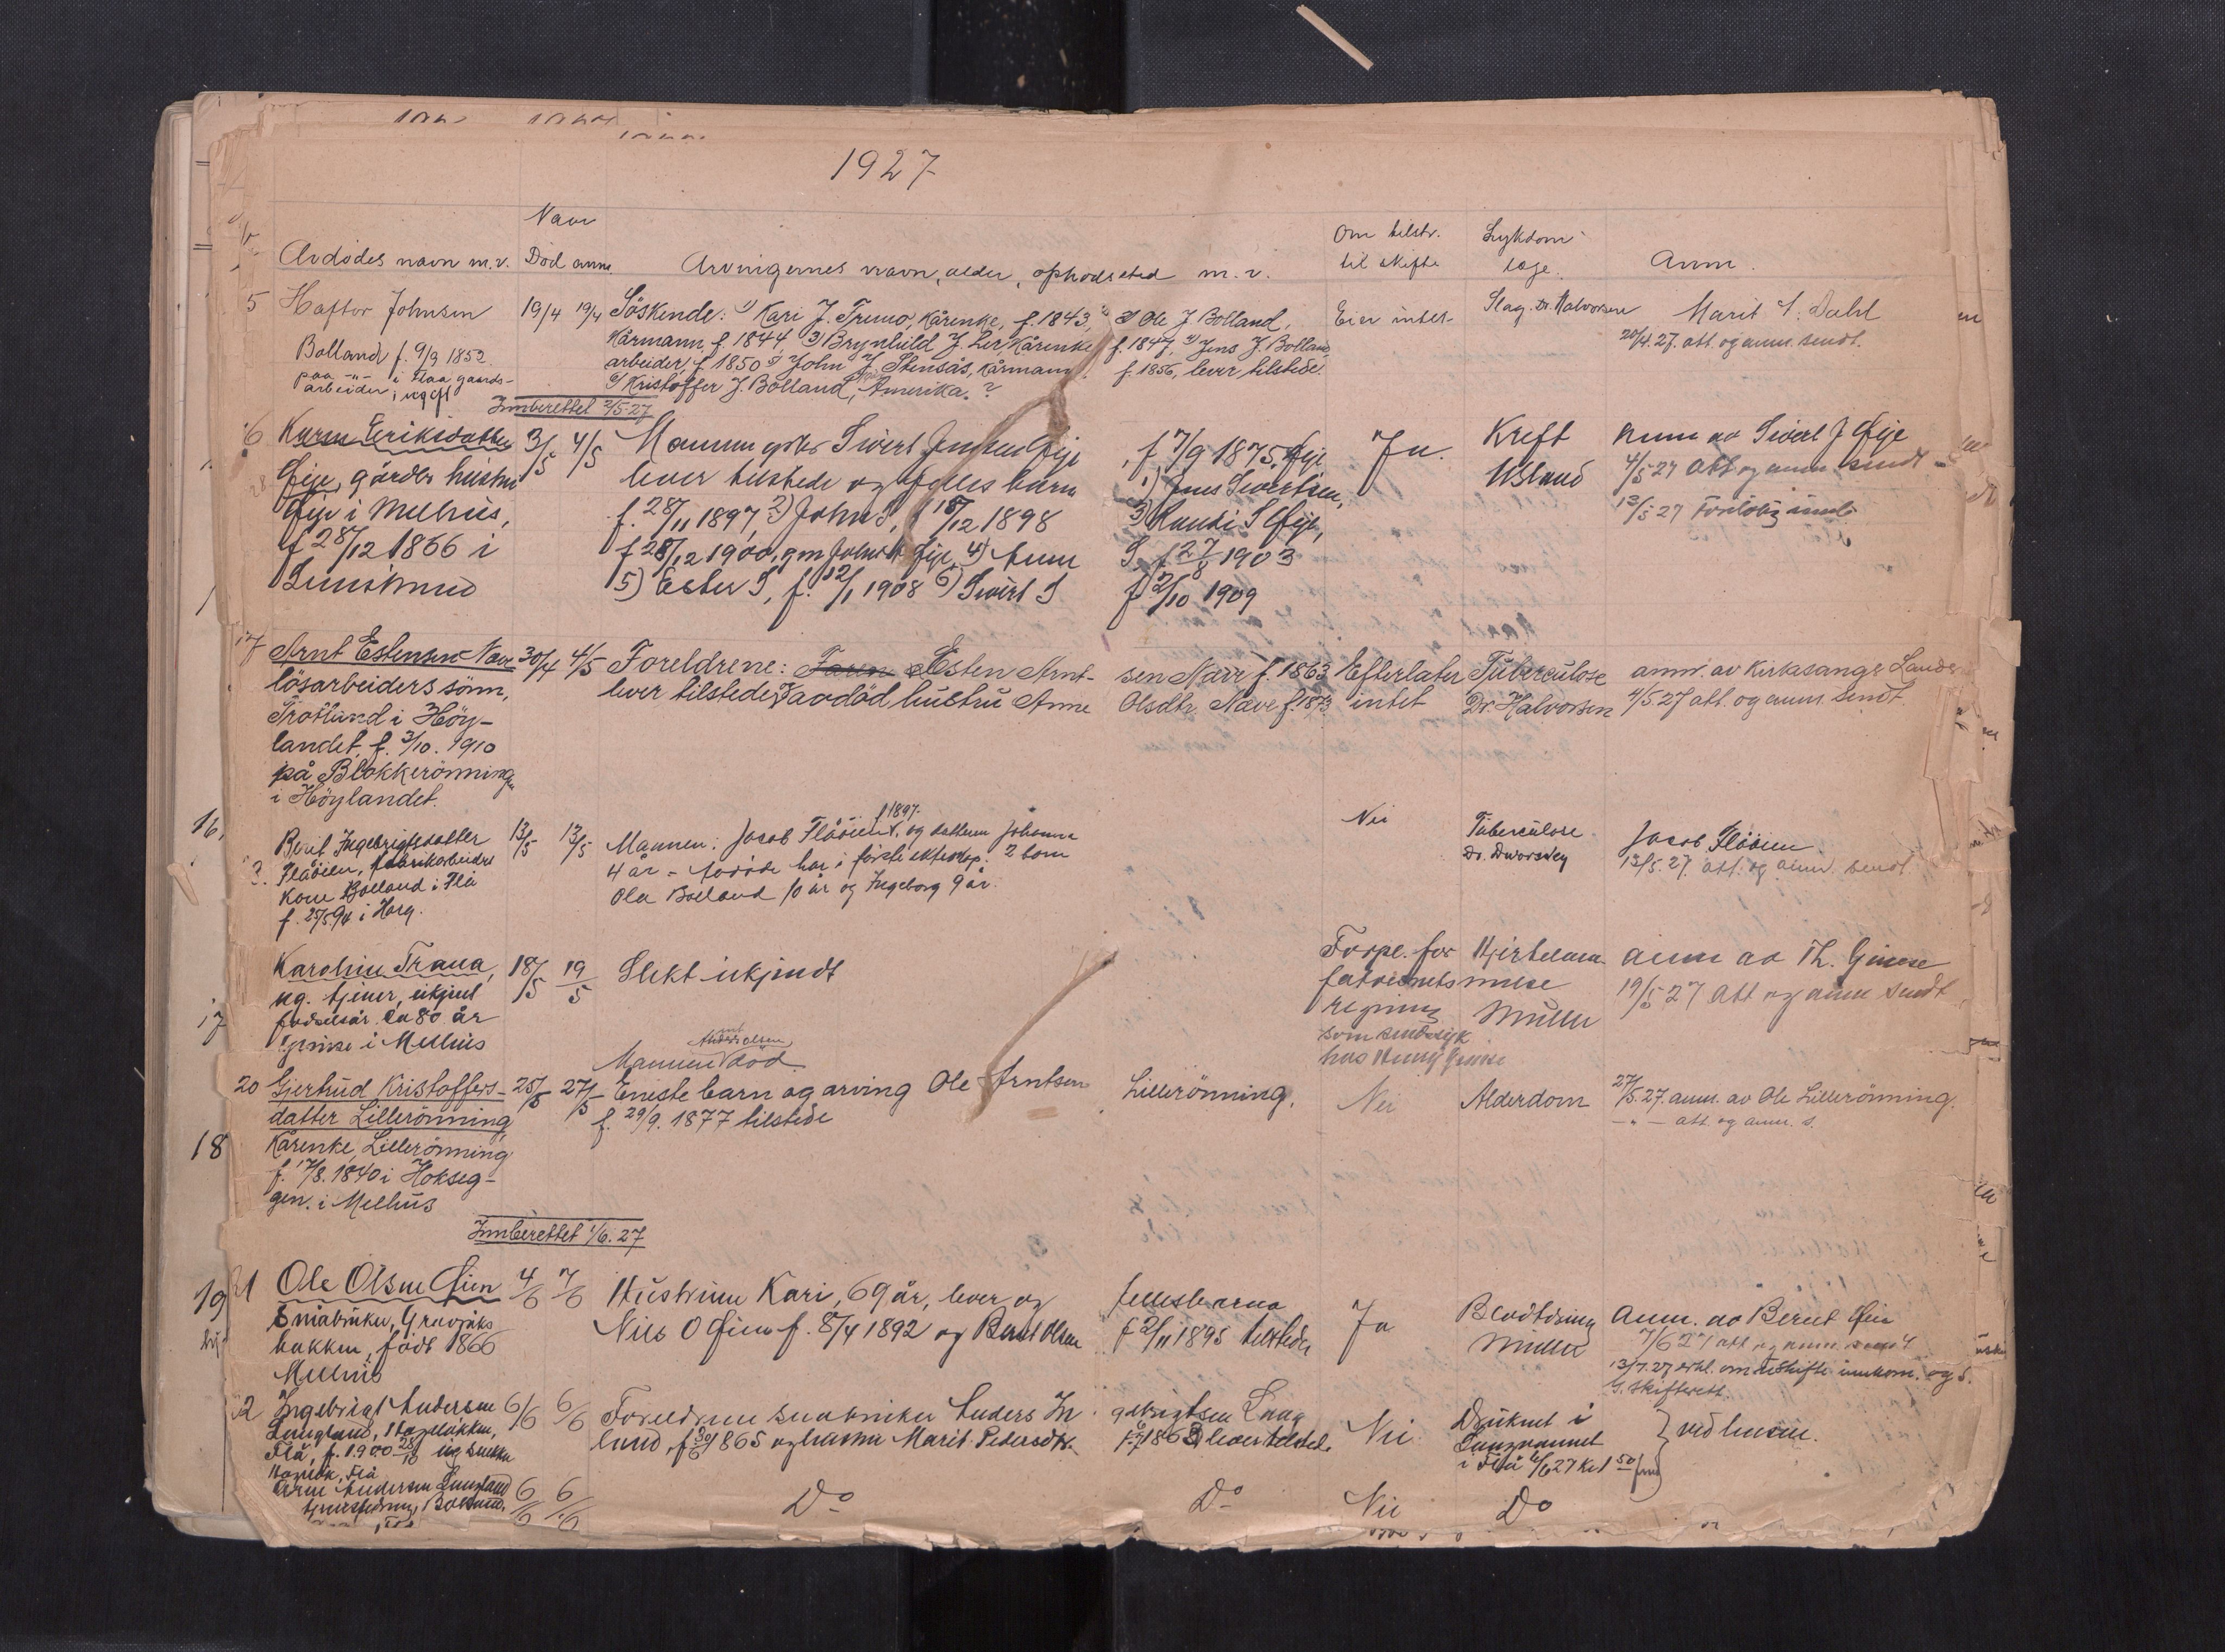 1927
Avdödes navn m.v.
Naar
Död anm.
Arvingernes navn, alder, opholdssted m.v.
Om tilstr.
til skifte
Sykdom
læge.
Anm.
5
Haftor Johnsen
Bolland f. 9/9 1852
paa -"- i Flaa gaards-
arbeider, ugift
19/4 19/4
Söskende: 1) Kari J. Trumo, Kårenke, f. 1843, 2) Ole J Bolland,
Kårmann, f. 1844, 3) Brynhild J. Ler, Kårenke f. 1847, 4) Jens J. Bolland
arbeider, f. 1850 5) John J. Stensås, kårmann f. 1856, lever tilstede.
6) Kristoffer J. Bolland, Amerika.?
Eier intet
Slag. Dr. Halvorsen
Marit S. Dahl
20/4. 27. att. og anm. sendt.
Innberettet 2/5-27
6
Karen Eriksdatter
Öije, gårdbr hustru
Öye i Melhus,
f 28/12 1866 i
3/5 4/5
Mannen gbr Sivert Jensen Öije, f 7/9 1875, Öije
lever tilstede og felles barn 1) Jens Sivertsen,
f. 28/11 1897, 2) John S, f 18/12 1898 3) Randi S Öije,
f 28/12 1900, gm John Öije, 4) S, f 27/8 1903
5) Ester S, f. 12/1 1908 6) Sivert S f 2/10 1909
Ja.
Kreft
Usland
Anm av Sivert J Öije
4/5 27 Att og anm sendt
13/5 27
17
Arnt Estensen Nave
lösarbeiders sönn,
i Höy-
landet, f. 3/10. 1910
på Blokkerönningen
i Höylandet.
30/4 4/5
Foreldrene: Esten Arnt- sen Navr f. 1863
lever tilstede, avdöd hustru Anne Olsdtr Nave f. 1873
Efterlater
intet
Tuberculose
Dr. Halvorsen
anm. av Kirkesanger
4/5. 27 att. og anm. sendt.
16,
Berit Ingebrigtsdatter
Flåöien, fabrikarbeiders
kone Bolland i Flå
f. 25/5 94 i Horg.
13/5 13/5
f 1897.
Mannen: Jacob Flåöien, og datteren Johanna
4 år - avdöde har i förste ekteskap: 2 barn
Ola Bolland 10 år og Ingeborg 9 år.
Nei
Tuberculose
Dr. Dworsky
Jacob Flåöien
13/5. 27. att. og anm. sendt
17
Karoline Trana,
ug. tjener, ukjent
födselsår. Ca 80 år
Gimse i Melhus
18/5 19/5
Slekt ukjendt
Forpl. for
fattigvesenets
regning
som sindssyk
hos Gimse
Hjertelam-
melse
Müller
Anm av Th. Gimse
19/5 27 Att og anm sendt
20
Gjertrud Kristoffers-
datter Lillerönning,
Kårenke, Lillerönning
f. 17/8. 1840 i Hokseg-
gen. i Melhus
25/5 27/5
Mannen död
Eneste barn og arving Ole Arntsen Lillerönning.
f. 29/9. 1877 tilstede
Nei
Alderdom
27/5. 27. anm. av Ole Lillerönning.
-"- att. og anm. s.
18
Innberettet 1/6. 27
19
21
Ole Olsen Öien
Småbruker,
bakken, födt 1866
Melhus
4/6 7/6
Hustruen Kari, 69 år, lever og fellesbarna
Nils O Öien f. 8/4 1892 og Bernt Olsen f 2/11 1895 tilstede
Ja
Müller
Anm. av Bernt Öien
7/6 27 att og anm sendt
13/7. 27 erkl. om uskifte innkom. og s.
t. skifterett.
22
Ingebrigt Andersen
Langland, Hageløkken,
Flå, f. 1900
6/6 6/6
Foreldrene småbruker Anders In- gebrigtsen Lang
land, f 1865 og hustru Marit Pedersdtr. f. 1863 lever tilstede
Nei
Druknet i
Langvannet
i Flå 6/6 27 kl 1 50
} ved lensm.
Arne Andersen Langland
6/6 6/6
Do
Do
Nei
Do